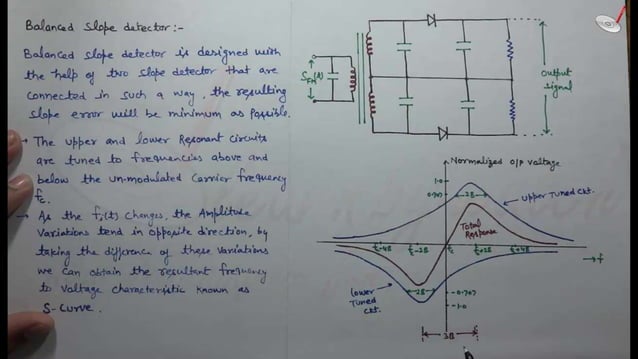 Balanced slope detector :-
Balanced slope detector is designed with
the help of two slope detector that are
connected in such a way, the resulting
slope error will be minimum as possible.
→ The upper and lower Resonant circuits
are tuned to frequencies above and
below the un-modulated carrier frequency
fc.
→ As the fi(t) changes, the Amplitude
variations tend in opposite direction, by
taking the difference of these variations
we can obtain the resultant frequency
to voltage characteristic known as
S-curve.
SFM(t)
output
signal
Normalized O/P voltage
1.0
0.707
2B
Upper Tuned Ckt.
Total
Response
fc-4B
fc-2B
fc
fc+2B
fc+4B
→ f
Lower
Tuned
Ckt.
2B
-0.707
-1.0
3B